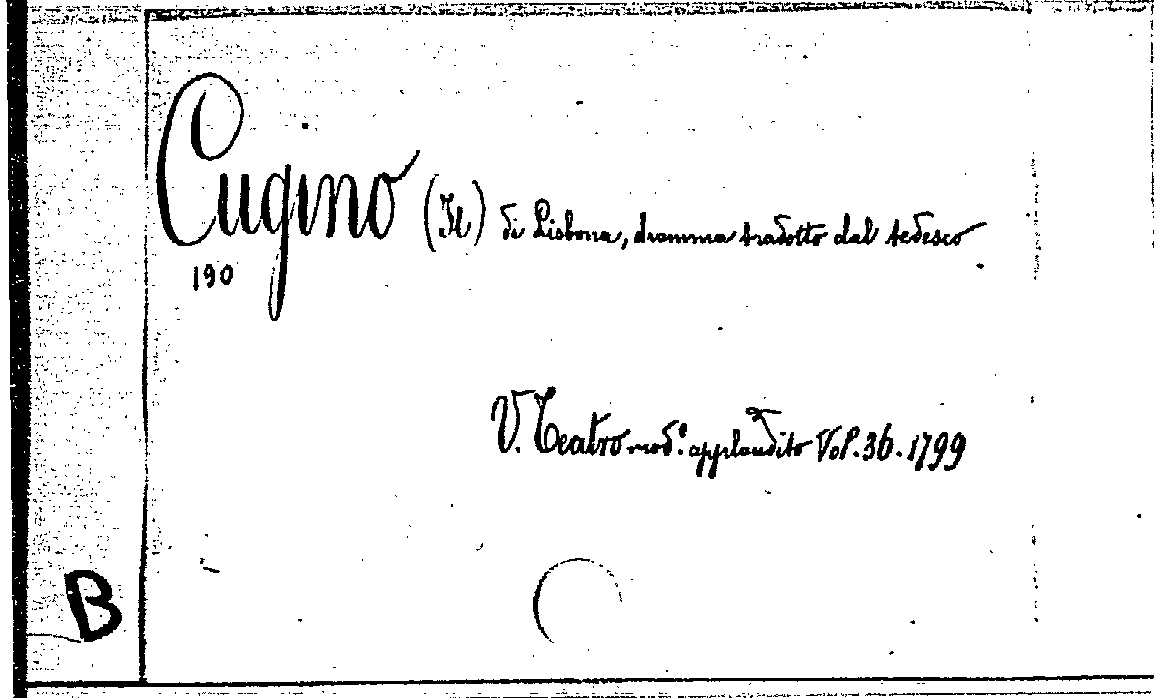 Cugino (Il) di Lisbona, dramma tradotto dal tedesco
190
V. Teatro mod.º applaudito Vol. 36. 1799
B